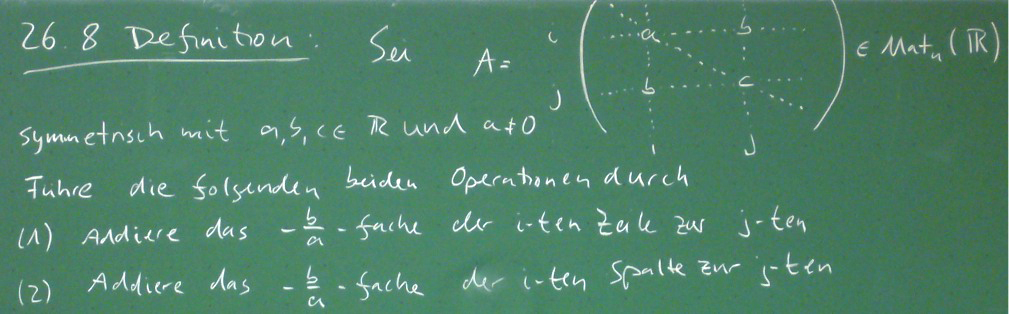 26.8 Definition: Sei A = i ( a b ) ∈ Mat_n(ℝ)
j b c
i j
symmetrisch mit a, b, c ∈ ℝ und a ≠ 0
Führe die folgenden beiden Operationen durch
(1) Addiere das -b/a-fache der i-ten Zeile zur j-ten
(2) Addiere das -b/a-fache der i-ten Spalte zur j-ten